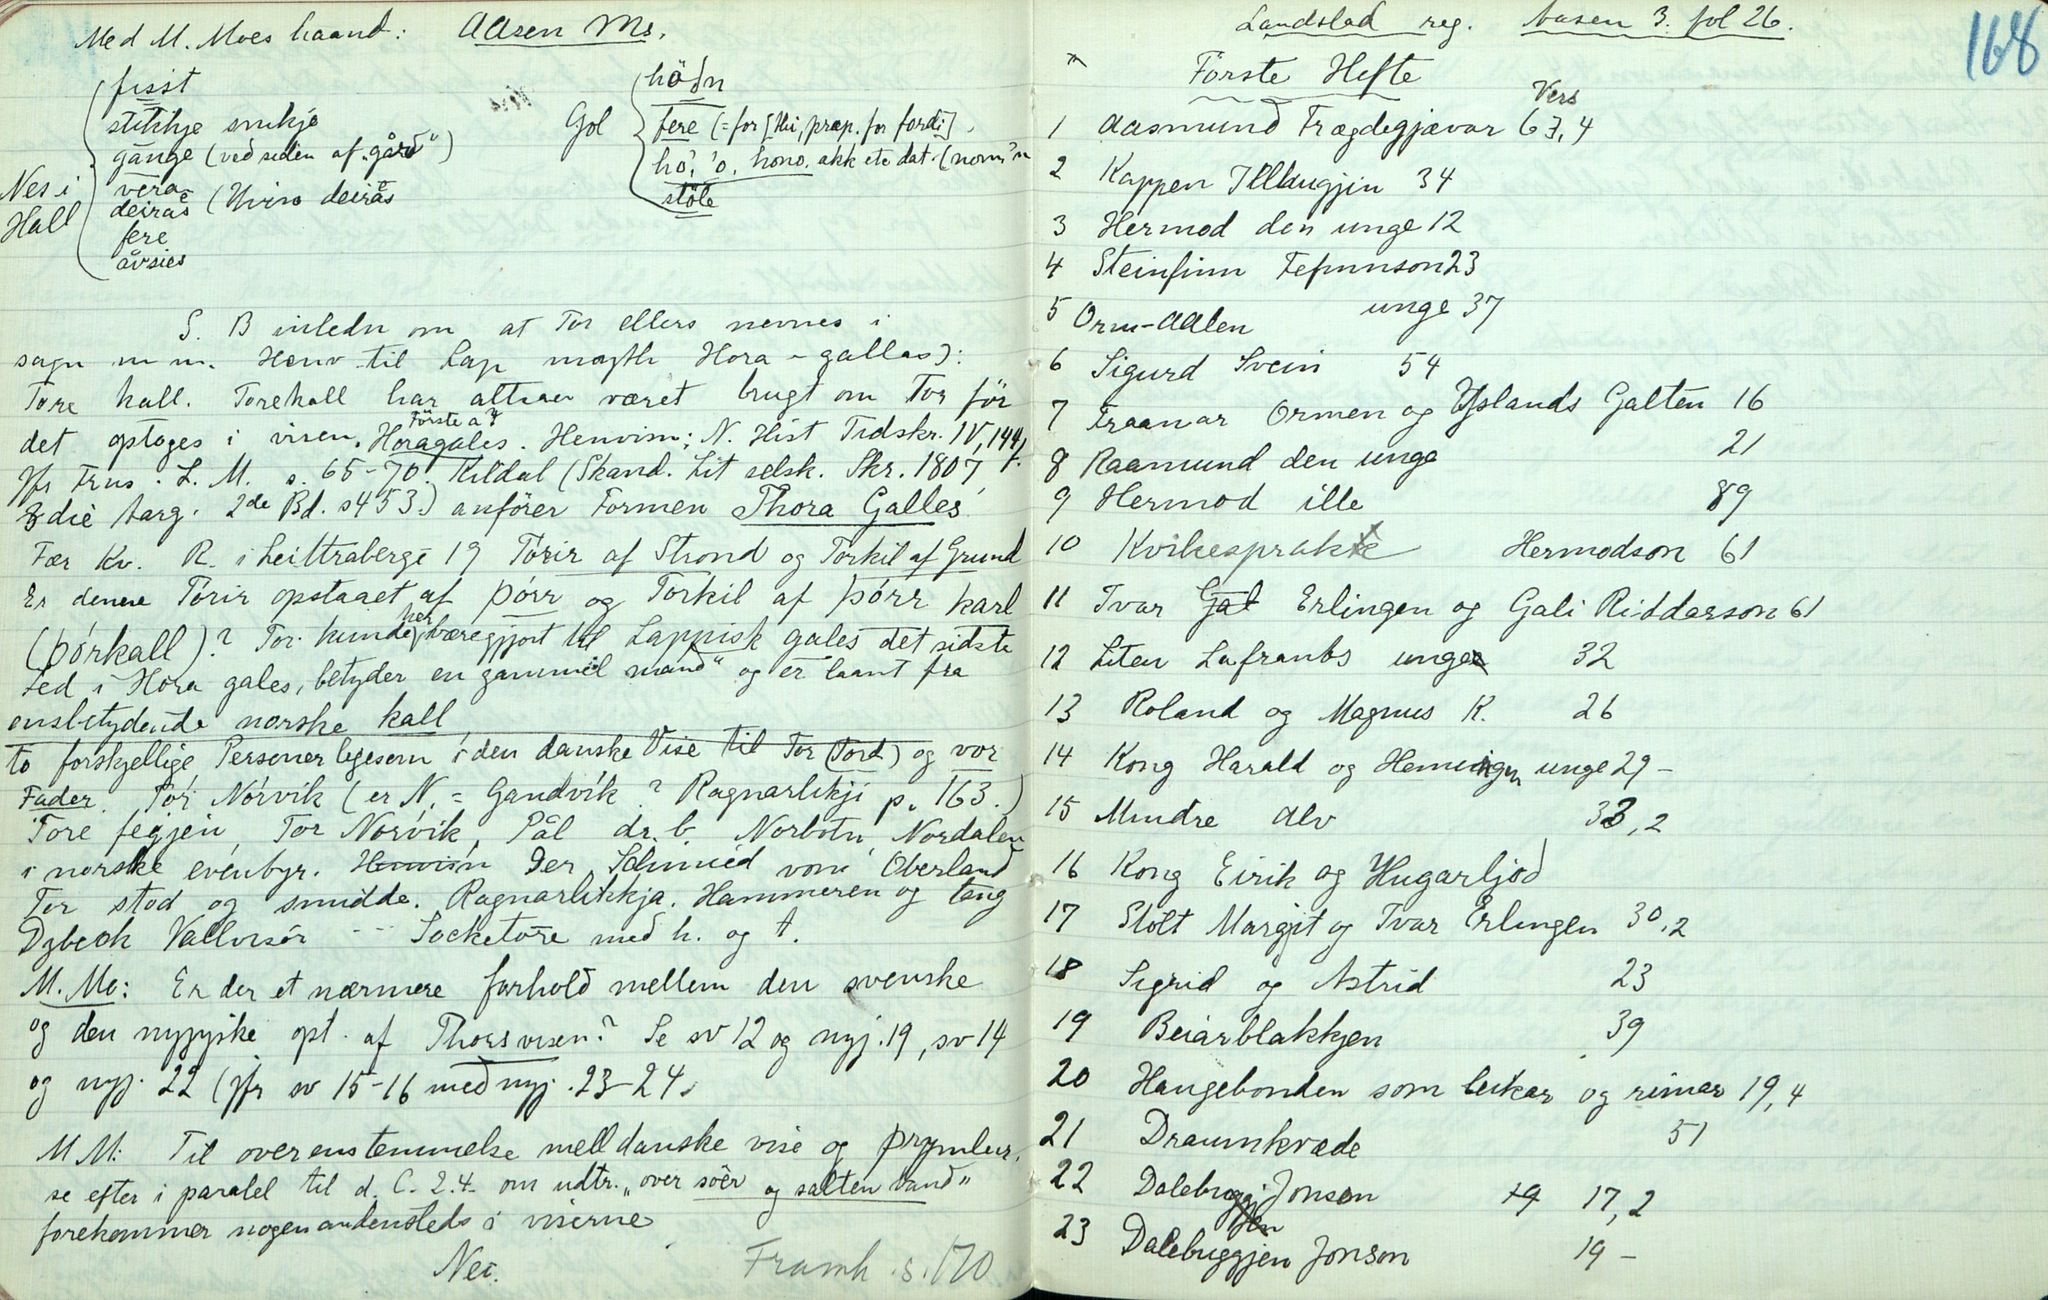 Med M. Moes haand: Aasen Ms.
fisst
stikkje snikje
gange (ved siden af „gård")
Nes i Hall
vera
deiras (Hvirv deiras
fere
åvsies
Gol
hödn
fere (= for [thi, præp. for fordi].
ho, 'o, hono. akk ete dat. (nom 'n
stöle
S. B inledn om at Tor ellers nevnes i
sagn m m. Henv til Lap myth Hora-galles):
Tore kall. Torekall har altsaa været brugt om Tor för
det optoges i visen. Horagales. Henvisn; N. Hist Tidskr. IV, 144,
Förste a?
Jfr Friis. L. M. s. 65-70. Kildal (Skand. Lit selsk. Skr. 1807,
3die Aarg. 2de Bd. s 453.) anförer Formen Thora Galles
Fær Kv. R. i Leittrabergi 19 Tórir af Strond og Torkil af Grund
Er denne Tórir opstaaet af þórr og Torkil af þórr karl
(þórkall)? Tor. kunde her være gjort til Lappisk gales det sidste
Led i Hora gales, betyder en gammel mand" og er laant fra
ensbetydende norske kall
to forskjellige Personer ligesom i den danske Vise til Tor (Tord) og vor
Fader. Tor Nórvik (er N. = Gandvik? Ragnarlikji p. 163.)
Tore fegjen, Tor Norvik, Pål dr. b. Norbotn, Nordalen
i norske evenbyr. Henvisn Der Schmied vom Oberland
Tor stod og smidde. Ragnarlikkja. Hammeren og tang
Dybeck Vallvisor -- Locketore med h. og t.
M. Mo: Er der et nærmere forhold mellem den svenske
og den nyjyske opt. af Thorsvisen? Se sv 12 og nyj. 19, sv 14
og nyj. 22 (jfr sv 15-16 med nyj. 23-24.
M M: Til overenstemmelse mell danske vise og þrymlur,
se efter i paralel til d. C. 2.4. om udtr. „over söer og salten vand"
forekommer nogen andensteds i viserne
Nei.
Framh. s. 170
Landstad reg. Aasen 3. fol 26.
168
Förste Hefte
Vers
1 Aasmund Frægdegjævar 67, 4
2 Kappen Illhugjin 34
3 Hermod den unge 12
4 Steinfinn Fefinnson 23
5 Orm-Aalen unge 37
6 Sigurd Svein 54
7 Fraamar Ormen og Yslands Galten 16
8 Raamund den unge 21
9 Hermod ille 89
10 Kvikesprakk Hermodson 61
11 Ivar Gal Erlingen og Gali Riddarson 61
12 Liten Lafrants unge 32
13 Roland og Magnus K. 26
14 Kong Harald og Hemingen unge 29 -
15 Mindre Alv 33, 2
16 Kong Eirik og Hugarljod
17 Stolt Margjit og Ivar Erlingen 30, 2
18 Sigrid og Astrid 23
19 Beiarblakkjen 39
20 Haugebonden som leikar og rimar 19, 4
21 Draumkvæde 51
22 Dalebuggj Jonsen 19 17, 2
23 Dalebuggjen Jonson 19 -